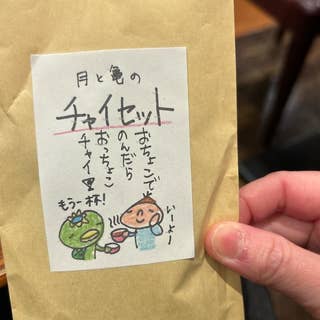 月と亀の
チャイセット
おちょこで
のんだら
おっちょこ
チャイ里
もう一杯!
いーよー